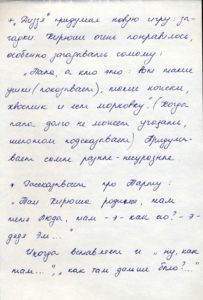 + „Дизя" придумал новую игру: за-
гадки. Кирюше очень понравилось,
особенно загадывать самому:
„Папа, а кто это: вот такие
ушки (показывает), такие ножки,
хвостик и ест морковку? (Когда
папа долго не может угадать,
шепотом подсказывает) Придумы-
вает самые разные-
* Рассказывает про Тарту:
„Там Кирюша родился, там
тетя Люда, там - э - как но? - э -
дядя Эм..."
Иногда вставляет и „ну, как
там...", „как там дальше было?..."